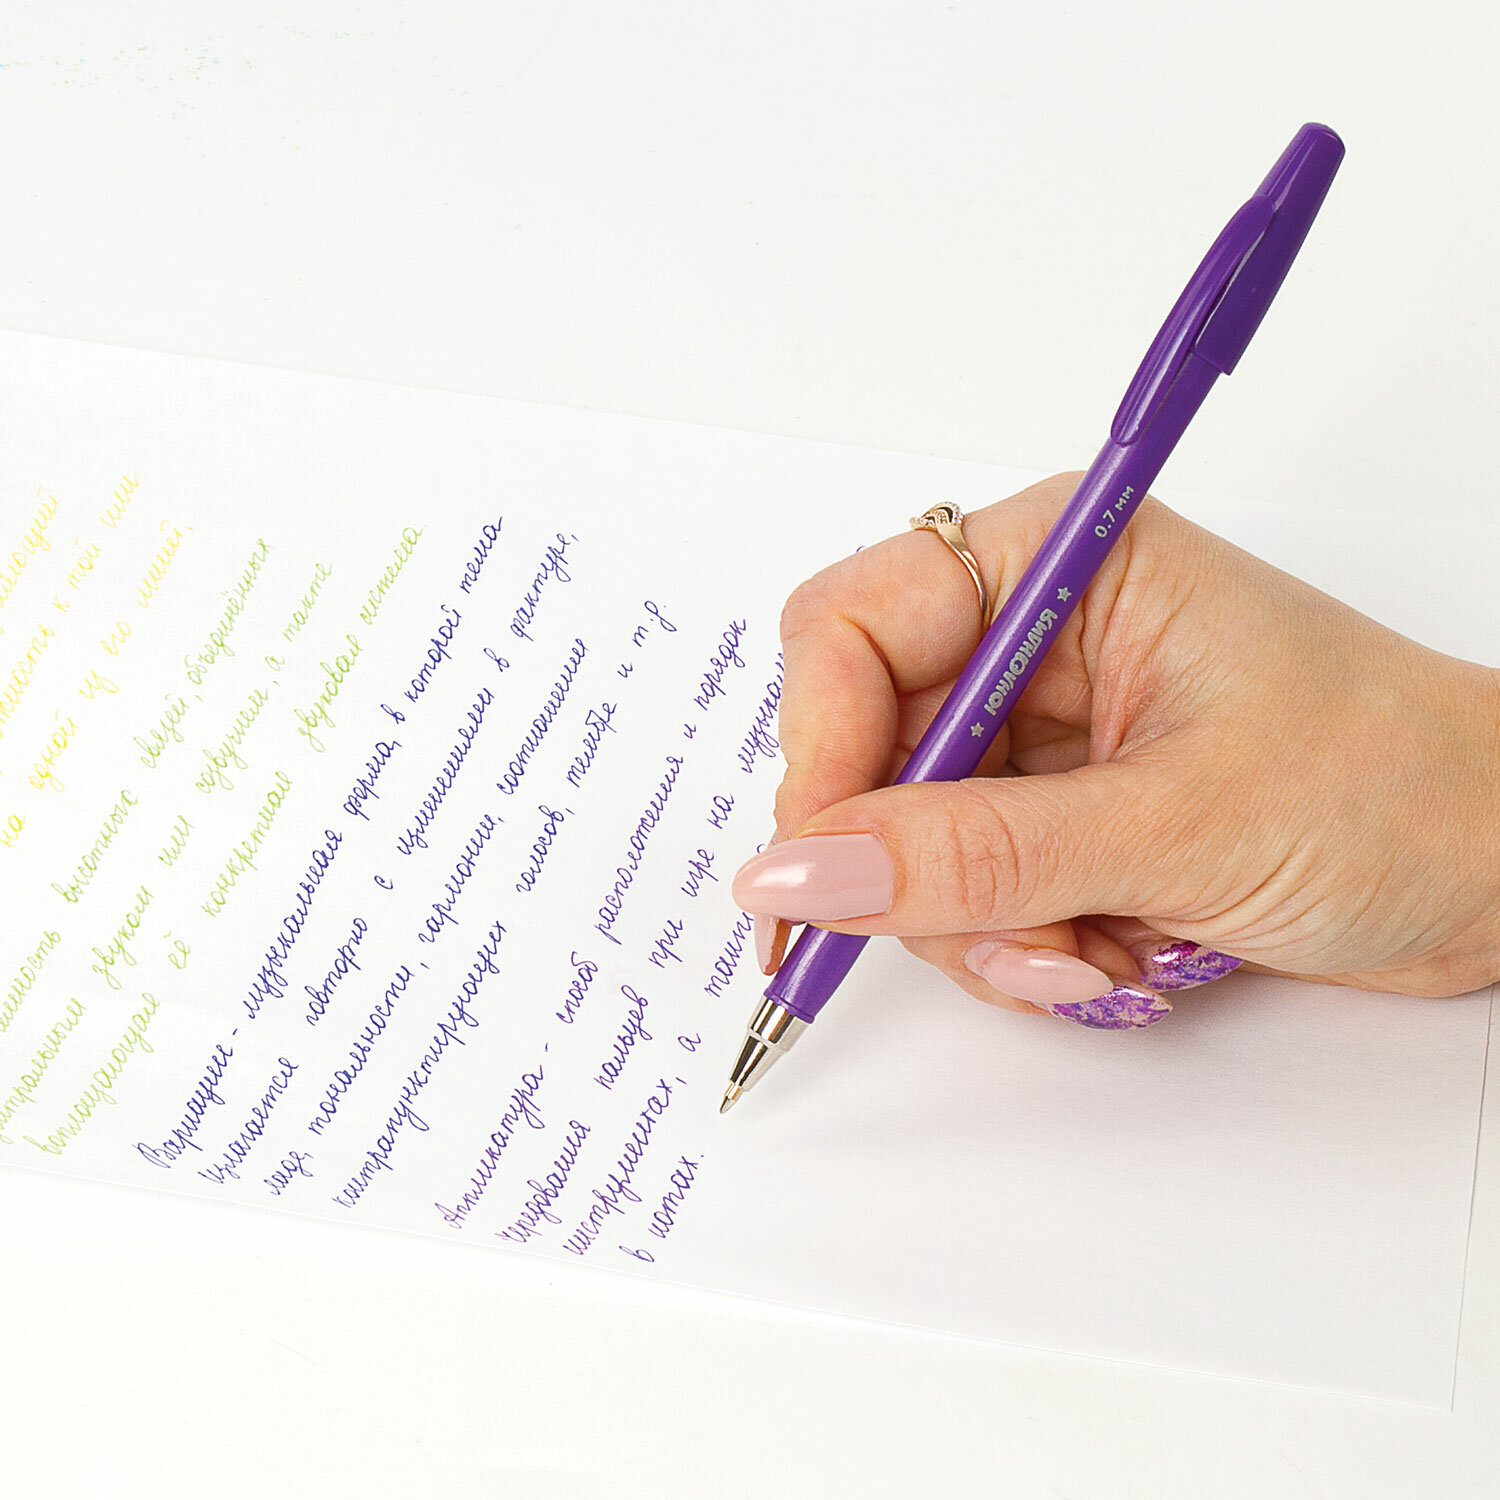 ность к той или
на одной из его линий.
высотных связей, объединённых
звуком или созвучием, а также
воплощающая её конкретная звуковая система.
Вариации - музыкальная форма, в которой тема
излагается повторно с изменениями в фактуре,
ладе, тональности, гармонии, соотношении
контрапунктирующих голосов, тембре и т.д.
Аппликатура - способ расположения и порядок
чередования пальцев при игре на
инструментах, а
в нотах.
ЮНЛАНДИЯ
0.7 мм